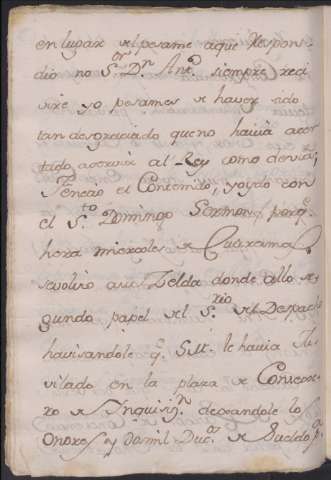 en lugar del pesame a que Respon-
dio no S.or D.n Ant.o siempre reci
vire yo pesames de haver sido
tan desgraciado que no havia acer
tado a servir al Rey como devia;
fenecio el Contenido, y oydo con
el S.to Domingo Sermon, porq.e
hera miercoles de Quaresma
se volvio a su Zelda donde allo se
gundo papel del S.rio del Despac
havisandole q.e S.M. le havia Ju
vilado en la plaza de Conseje
ro de Inquisi.n dexandole los
Onores, y dos mil Duc.os de Sueldo p.a